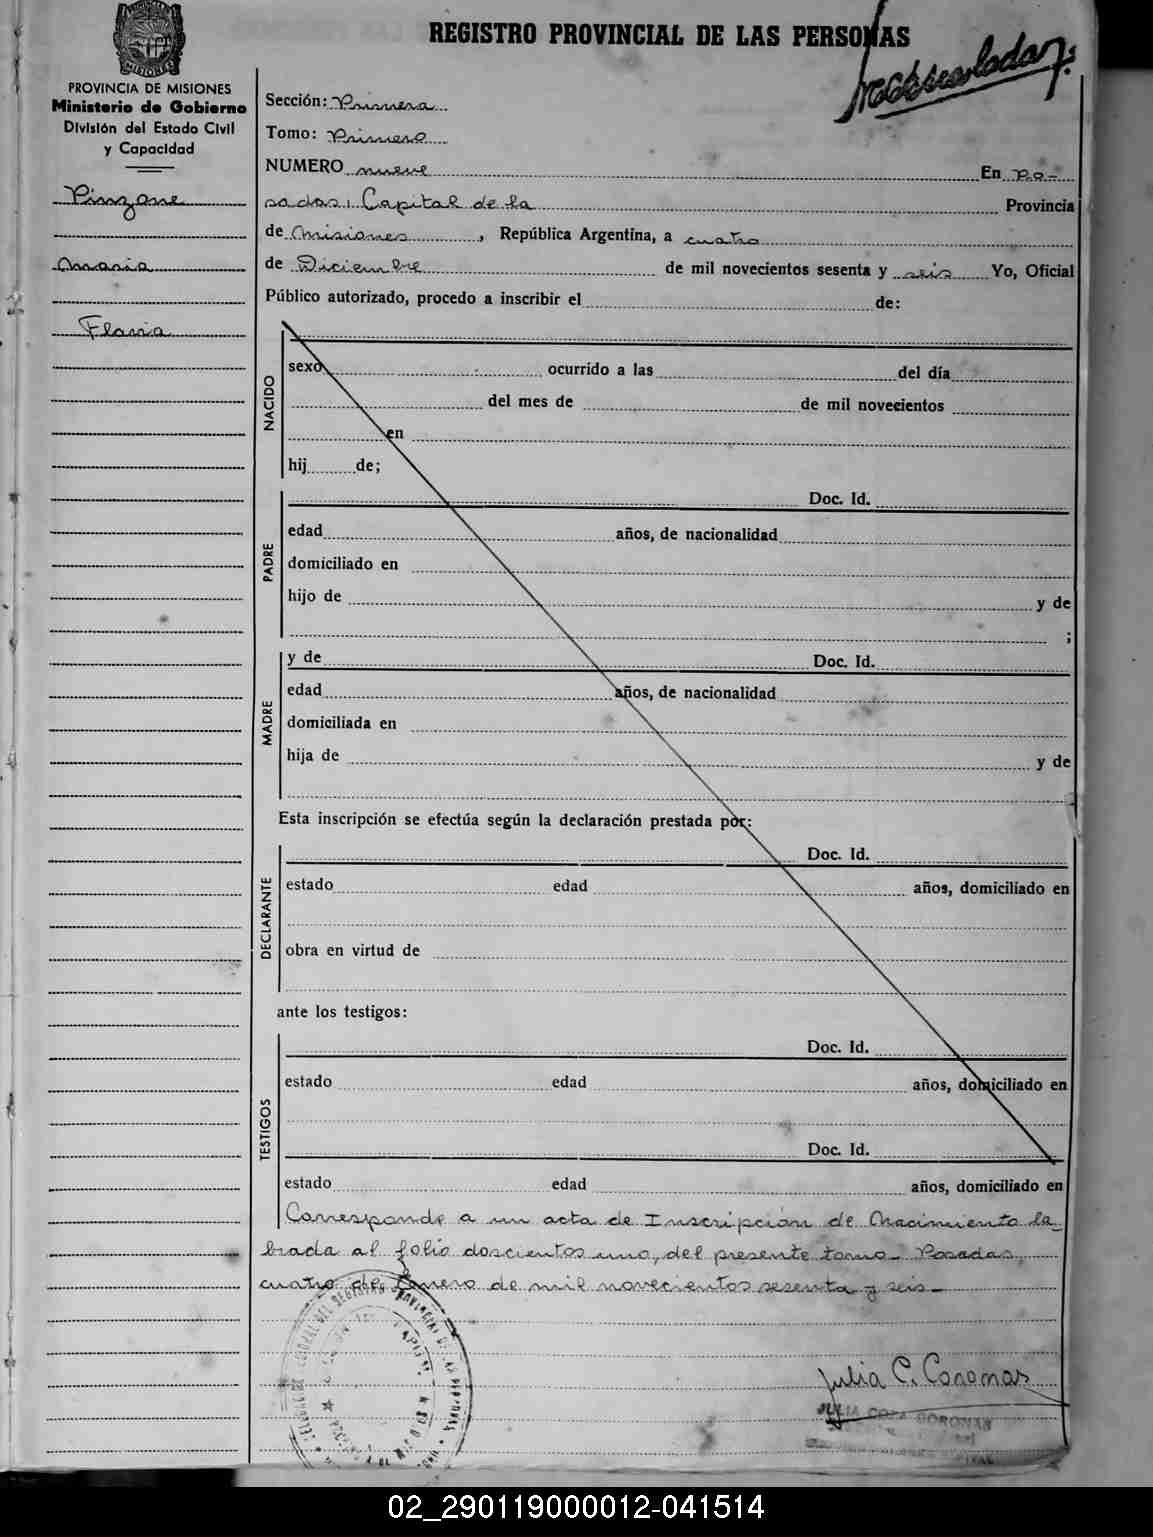 REGISTRO PROVINCIAL DE LAS PERSONAS
MISIONES
PROVINCIA DE MISIONES
Ministerio de Gobierno
División del Estado Civil
y Capacidad
Pinzone
Maria
Flavia
Sección: Primera
Tomo: Primero
NUMERO nueve En Po-
sadas, Capital de la Provincia
de Misiones, República Argentina, a cuatro
de Diciembre de mil novecientos sesenta y seis Yo, Oficial
Público autorizado, procedo a inscribir el de:
NACIDO
sexo ocurrido a las del día
del mes de de mil novecientos
en
hij de;
PADRE
Doc. Id.
edad años, de nacionalidad
domiciliado en
hijo de y de
;
MADRE
y de Doc. Id.
edad años, de nacionalidad
domiciliada en
hija de y de
Esta inscripción se efectúa según la declaración prestada por:
DECLARANTE
Doc. Id.
estado edad años, domiciliado en
obra en virtud de
ante los testigos:
TESTIGOS
Doc. Id.
estado edad años, domiciliado en
Doc. Id.
estado edad años, domiciliado en
Corresponde a un acta de Inscripción de Nacimiento la-
brada al folio doscientos uno, del presente tomo- Posadas,
cuatro de Enero de mil novecientos sesenta y seis-
Julia C. Coronas
JULIA CORONAS
02_290119000012-041514